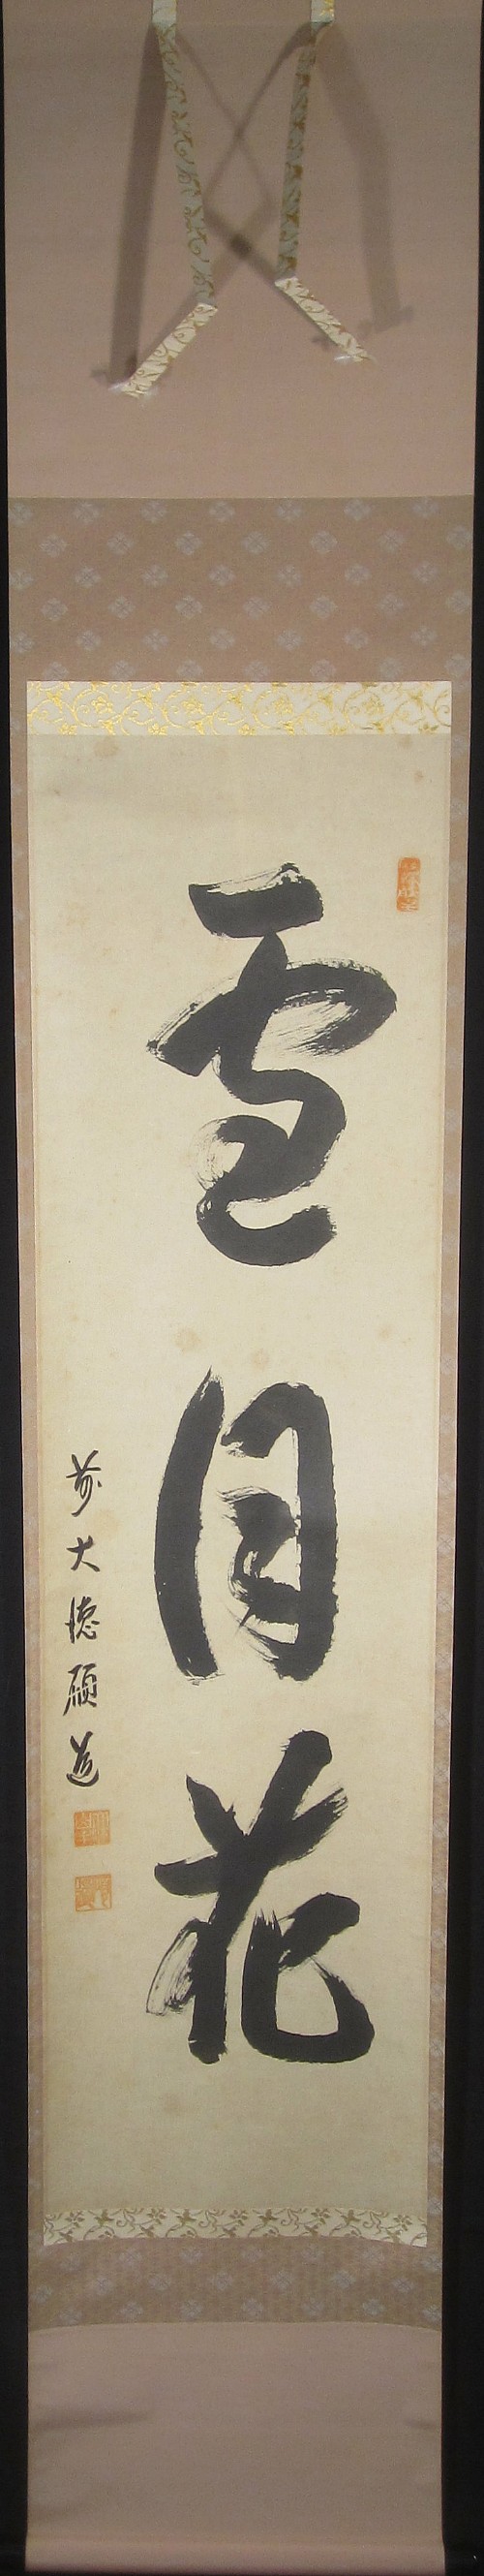 雪月花
前大徳碩道